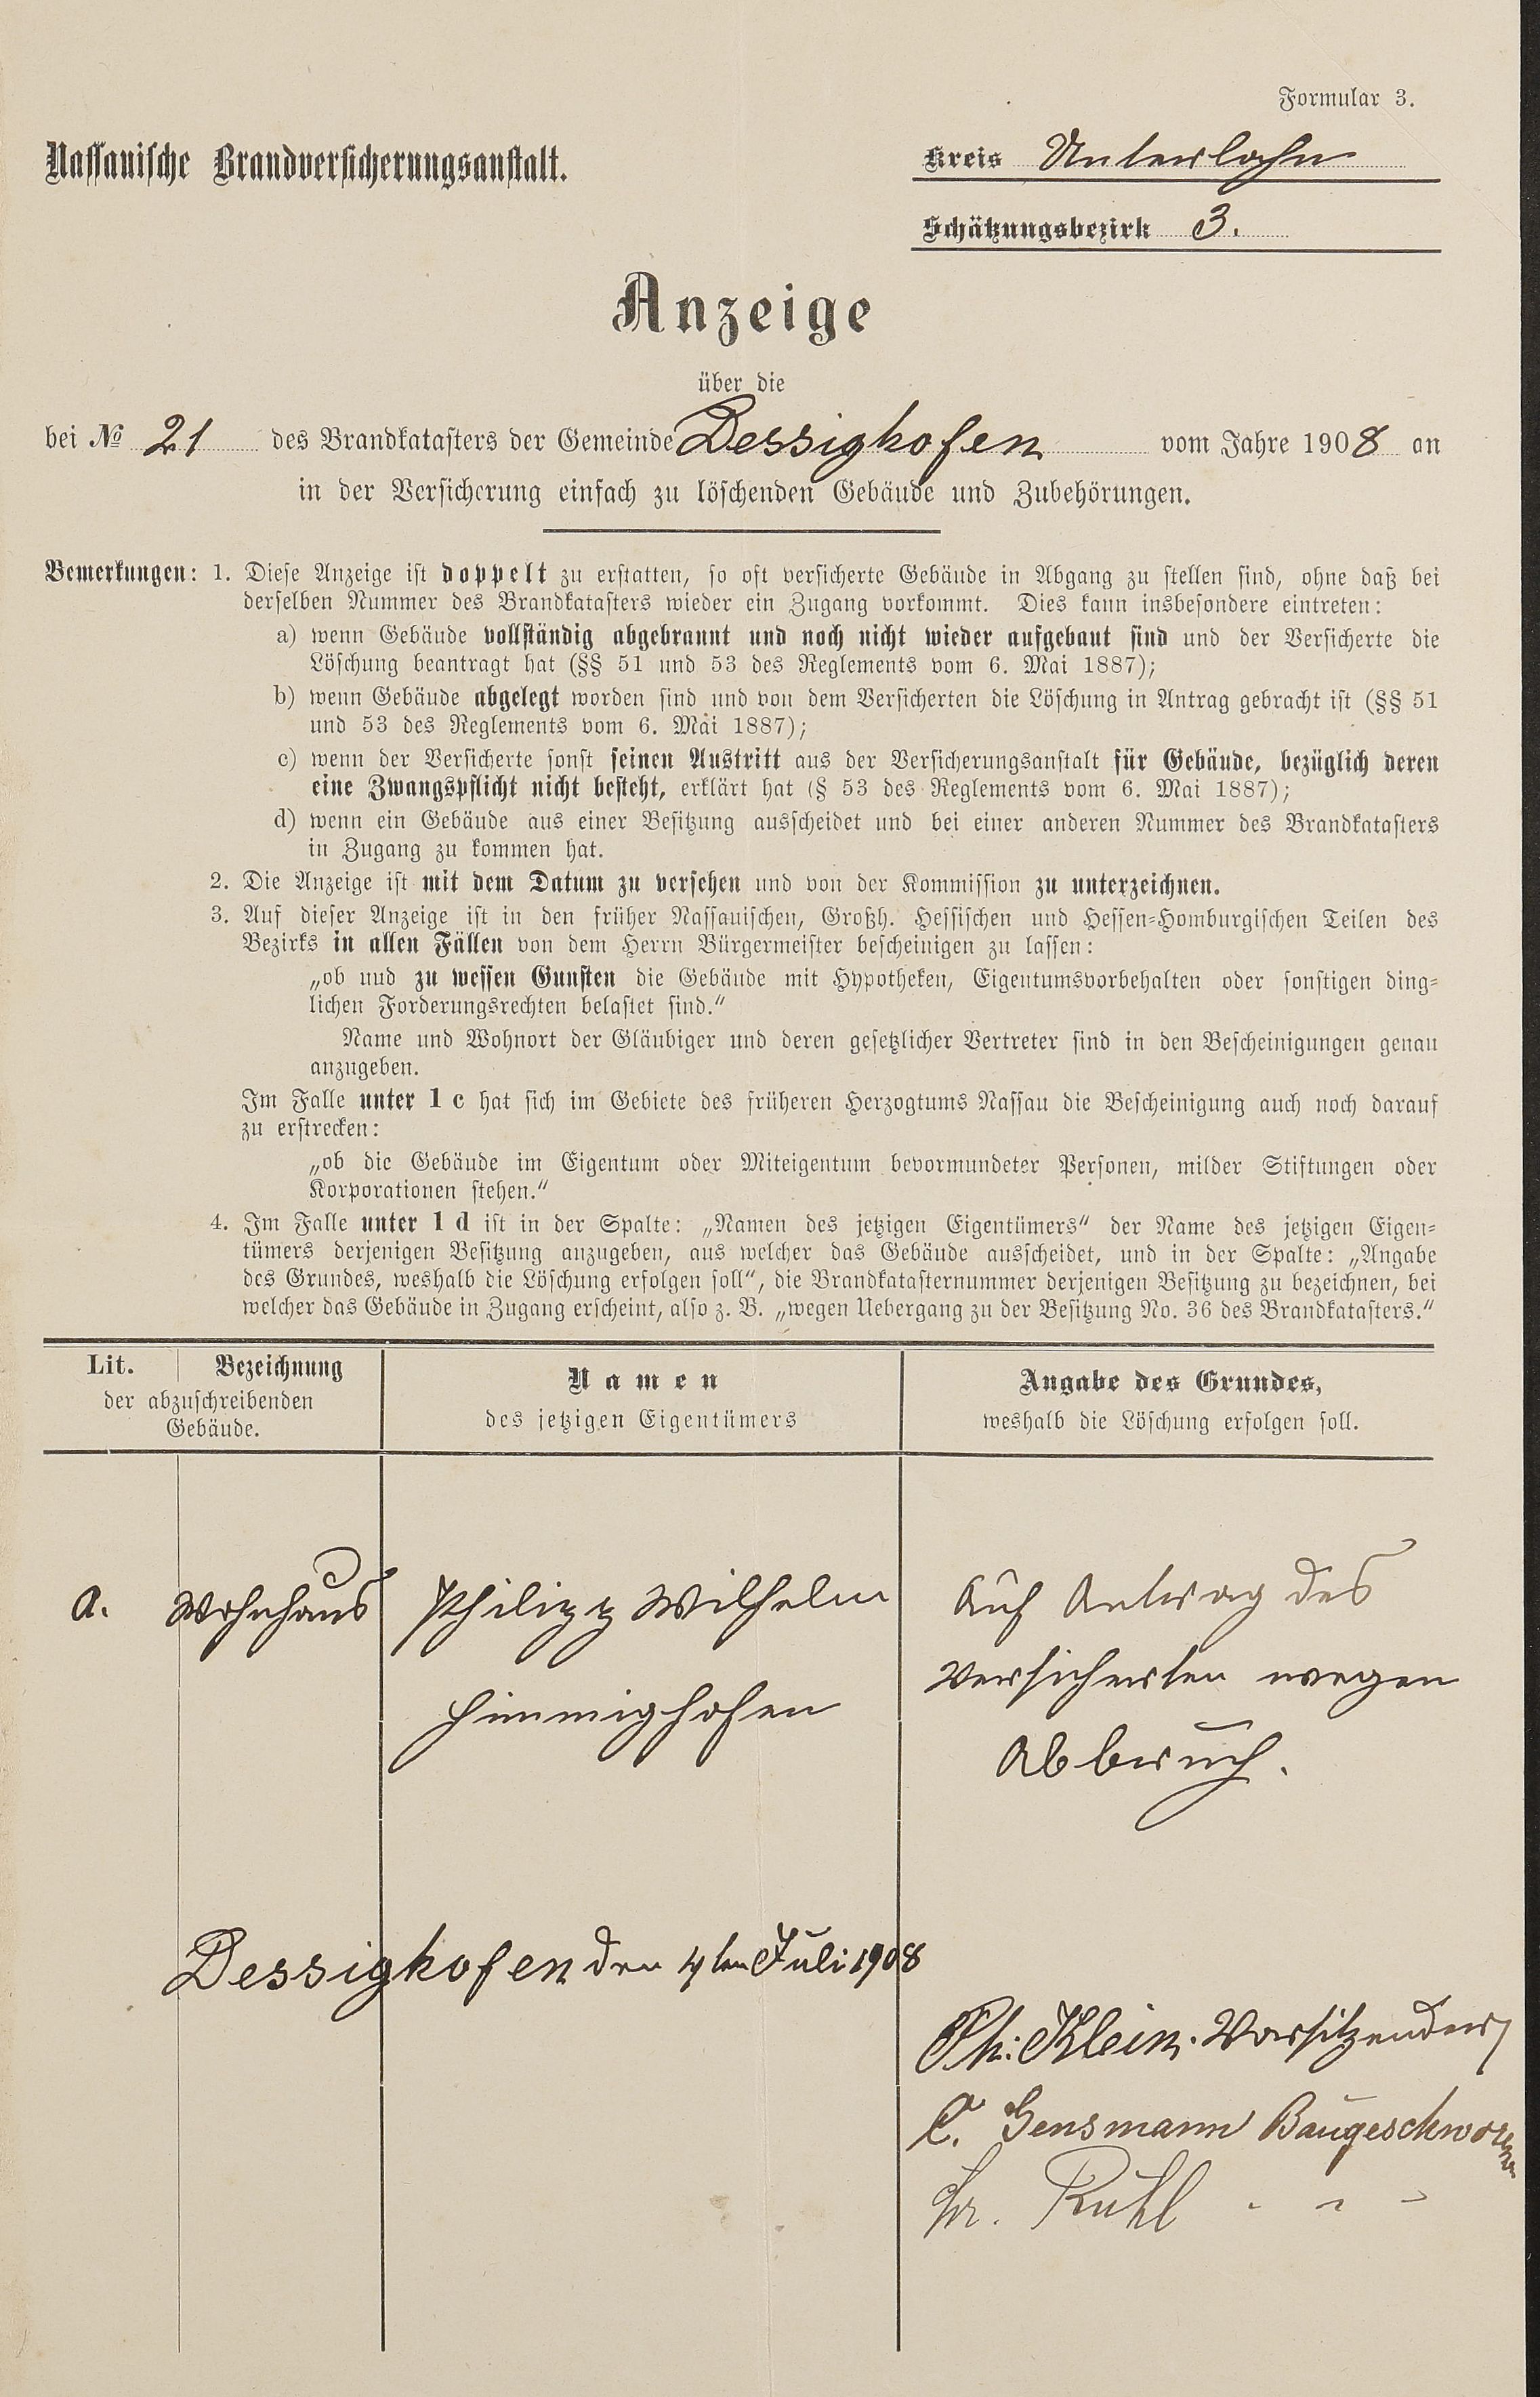 Formular 3.
Nassauische Brandversicherungsanstalt.
Kreis Unterlahn
Schätzungsbezirk 3.
Anzeige
über die
bei № 21 des Brandkatasters der Gemeinde Dessighofen vom Jahre 1908 an
in der Versicherung einfach zu löschenden Gebäude und Zubehörungen.
Bemerkungen: 1. Diese Anzeige ist doppelt zu erstatten, so oft versicherte Gebäude in Abgang zu stellen sind, ohne daß bei
derselben Nummer des Brandkatasters wieder ein Zugang vorkommt. Dies kann insbesondere eintreten:
a) wenn Gebäude vollständig abgebrannt und noch nicht wieder aufgebaut sind und der Versicherte die
Löschung beantragt hat (§§ 51 und 53 des Reglements vom 6. Mai 1887);
b) wenn Gebäude abgelegt worden sind und von dem Versicherten die Löschung in Antrag gebracht ist (§§ 51
und 53 des Reglements vom 6. Mai 1887);
c) wenn der Versicherte sonst seinen Austritt aus der Versicherungsanstalt für Gebäude, bezüglich deren
eine Zwangspflicht nicht besteht, erklärt hat (§ 53 des Reglements vom 6. Mai 1887);
d) wenn ein Gebäude aus einer Besitzung ausscheidet und bei einer anderen Nummer des Brandkatasters
in Zugang zu kommen hat.
2. Die Anzeige ist mit dem Datum zu versehen und von der Kommission zu unterzeichnen.
3. Auf dieser Anzeige ist in den früher Nassauischen, Großh. Hessischen und Hessen-Homburgischen Teilen des
Bezirks in allen Fällen von dem Herrn Bürgermeister bescheinigen zu lassen:
„ob und zu wessen Gunsten die Gebäude mit Hypotheken, Eigentumsvorbehalten oder sonstigen ding-
lichen Forderungsrechten belastet sind.“
Name und Wohnort der Gläubiger und deren gesetzlicher Vertreter sind in den Bescheinigungen genau
anzugeben.
Im Falle unter 1 c hat sich im Gebiete des früheren Herzogtums Nassau die Bescheinigung auch noch darauf
zu erstrecken:
„ob die Gebäude im Eigentum oder Miteigentum bevormundeter Personen, milder Stiftungen oder
Korporationen stehen.“
4. Im Falle unter 1 d ist in der Spalte: „Namen des jetzigen Eigentümers“ der Name des jetzigen Eigen-
tümers derjenigen Besitzung anzugeben, aus welcher das Gebäude ausscheidet, und in der Spalte: „Angabe
des Grundes, weshalb die Löschung erfolgen soll“, die Brandkatasternummer derjenigen Besitzung zu bezeichnen, bei
welcher das Gebäude in Zugang erscheint, also z. B. „wegen Uebergang zu der Besitzung No. 36 des Brandkatasters.“
Lit. Bezeichnung
der abzuschreibenden
Gebäude.
Namen
des jetzigen Eigentümers
Angabe des Grundes,
weshalb die Löschung erfolgen soll.
a. Wohnhaus
Philipp Wilhelm
Himmighofen
Auf Antrag des
Versicherten wegen
Abbruch.
Dessighofen den 4ten Juli 1908
Ph: Klein. Vorsitzender
C. Gensmann Baugeschworene
Kr. Ruhl " " "